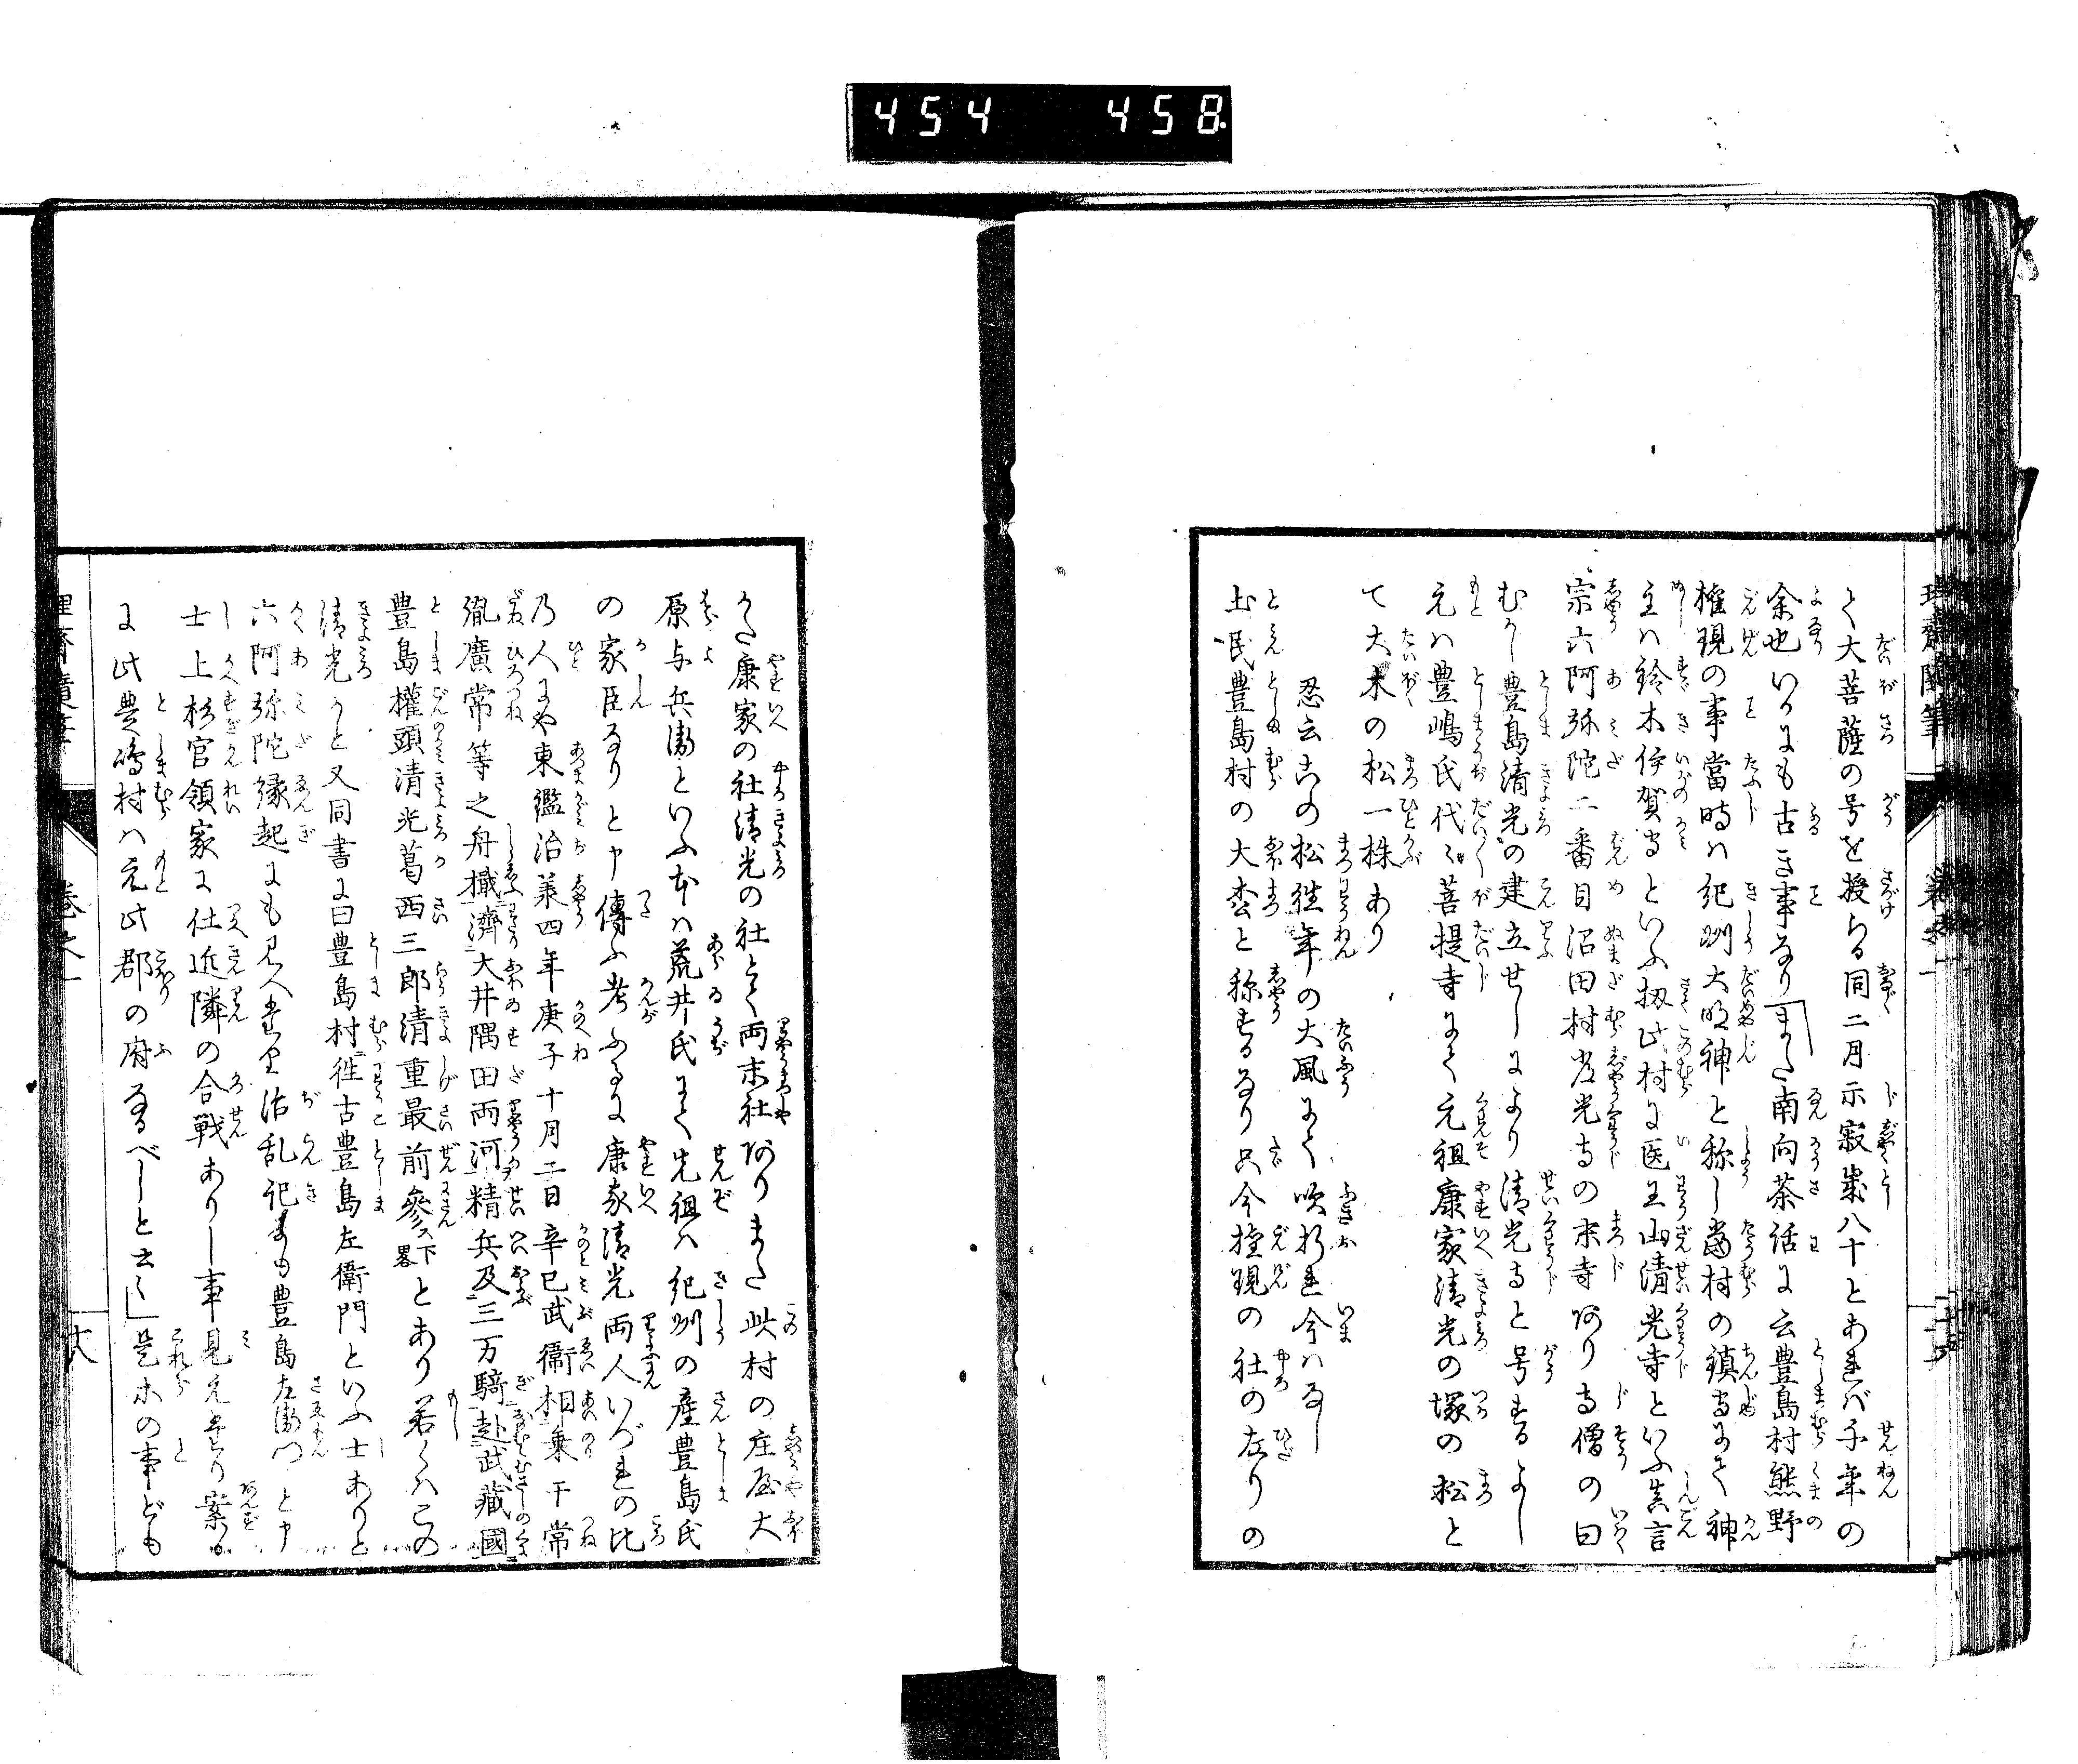 454 458
理齋随筆
く大菩薩の号を授らる同二月示寂歳八十とあれバ千年の
余也いかにも古き事なり「また南向茶話に云豊島村熊野
権現の事當時ハ紀州大明神と称し當村の鎮守にて神
主ハ鈴木伊賀守といふ扨此村に医王山清光寺といふ真言
宗六阿弥陀二番目沼田村惣光寺の末寺あり寺僧の曰
むかし豊島清光の建立せしにより清光寺と号するよし
元ハ豊嶋氏代々菩提寺にて元祖康家清光の塚の松と
て大木の松一株あり
忍云右の松往年の大風にて吹折れ今ハなし
土民豊島村の大松と称するなり只今権現の社の左りの
かた康家の社清光の社とて両末社ありまた此村の庄屋大
原与兵衛といふ者ハ荒井氏にて先祖ハ紀州の産豊島氏
の家臣なりと申傳ふ考ふるに康家清光両人いづれの比
乃人にや東鑑治承四年庚子十月二日辛巳武衛相乗于常
胤廣常等之舟檝濟大井隅田両河精兵及三万騎赴武藏國
豊島權頭清光葛西三郎清重最前參下畧とあり若くハこの
清光かと又同書に曰豊島村往古豊島左衛門といふ士ありと
六阿弥陀縁起にも見へたり治乱記にも豊島左衛門と申
士上杉官領家に仕近隣の合戦ありし事見えたり案る
に此豊嶋村ハ元此郡の府なるべしと云々」是等の事ども
理齋隨筆
巻之一
十八